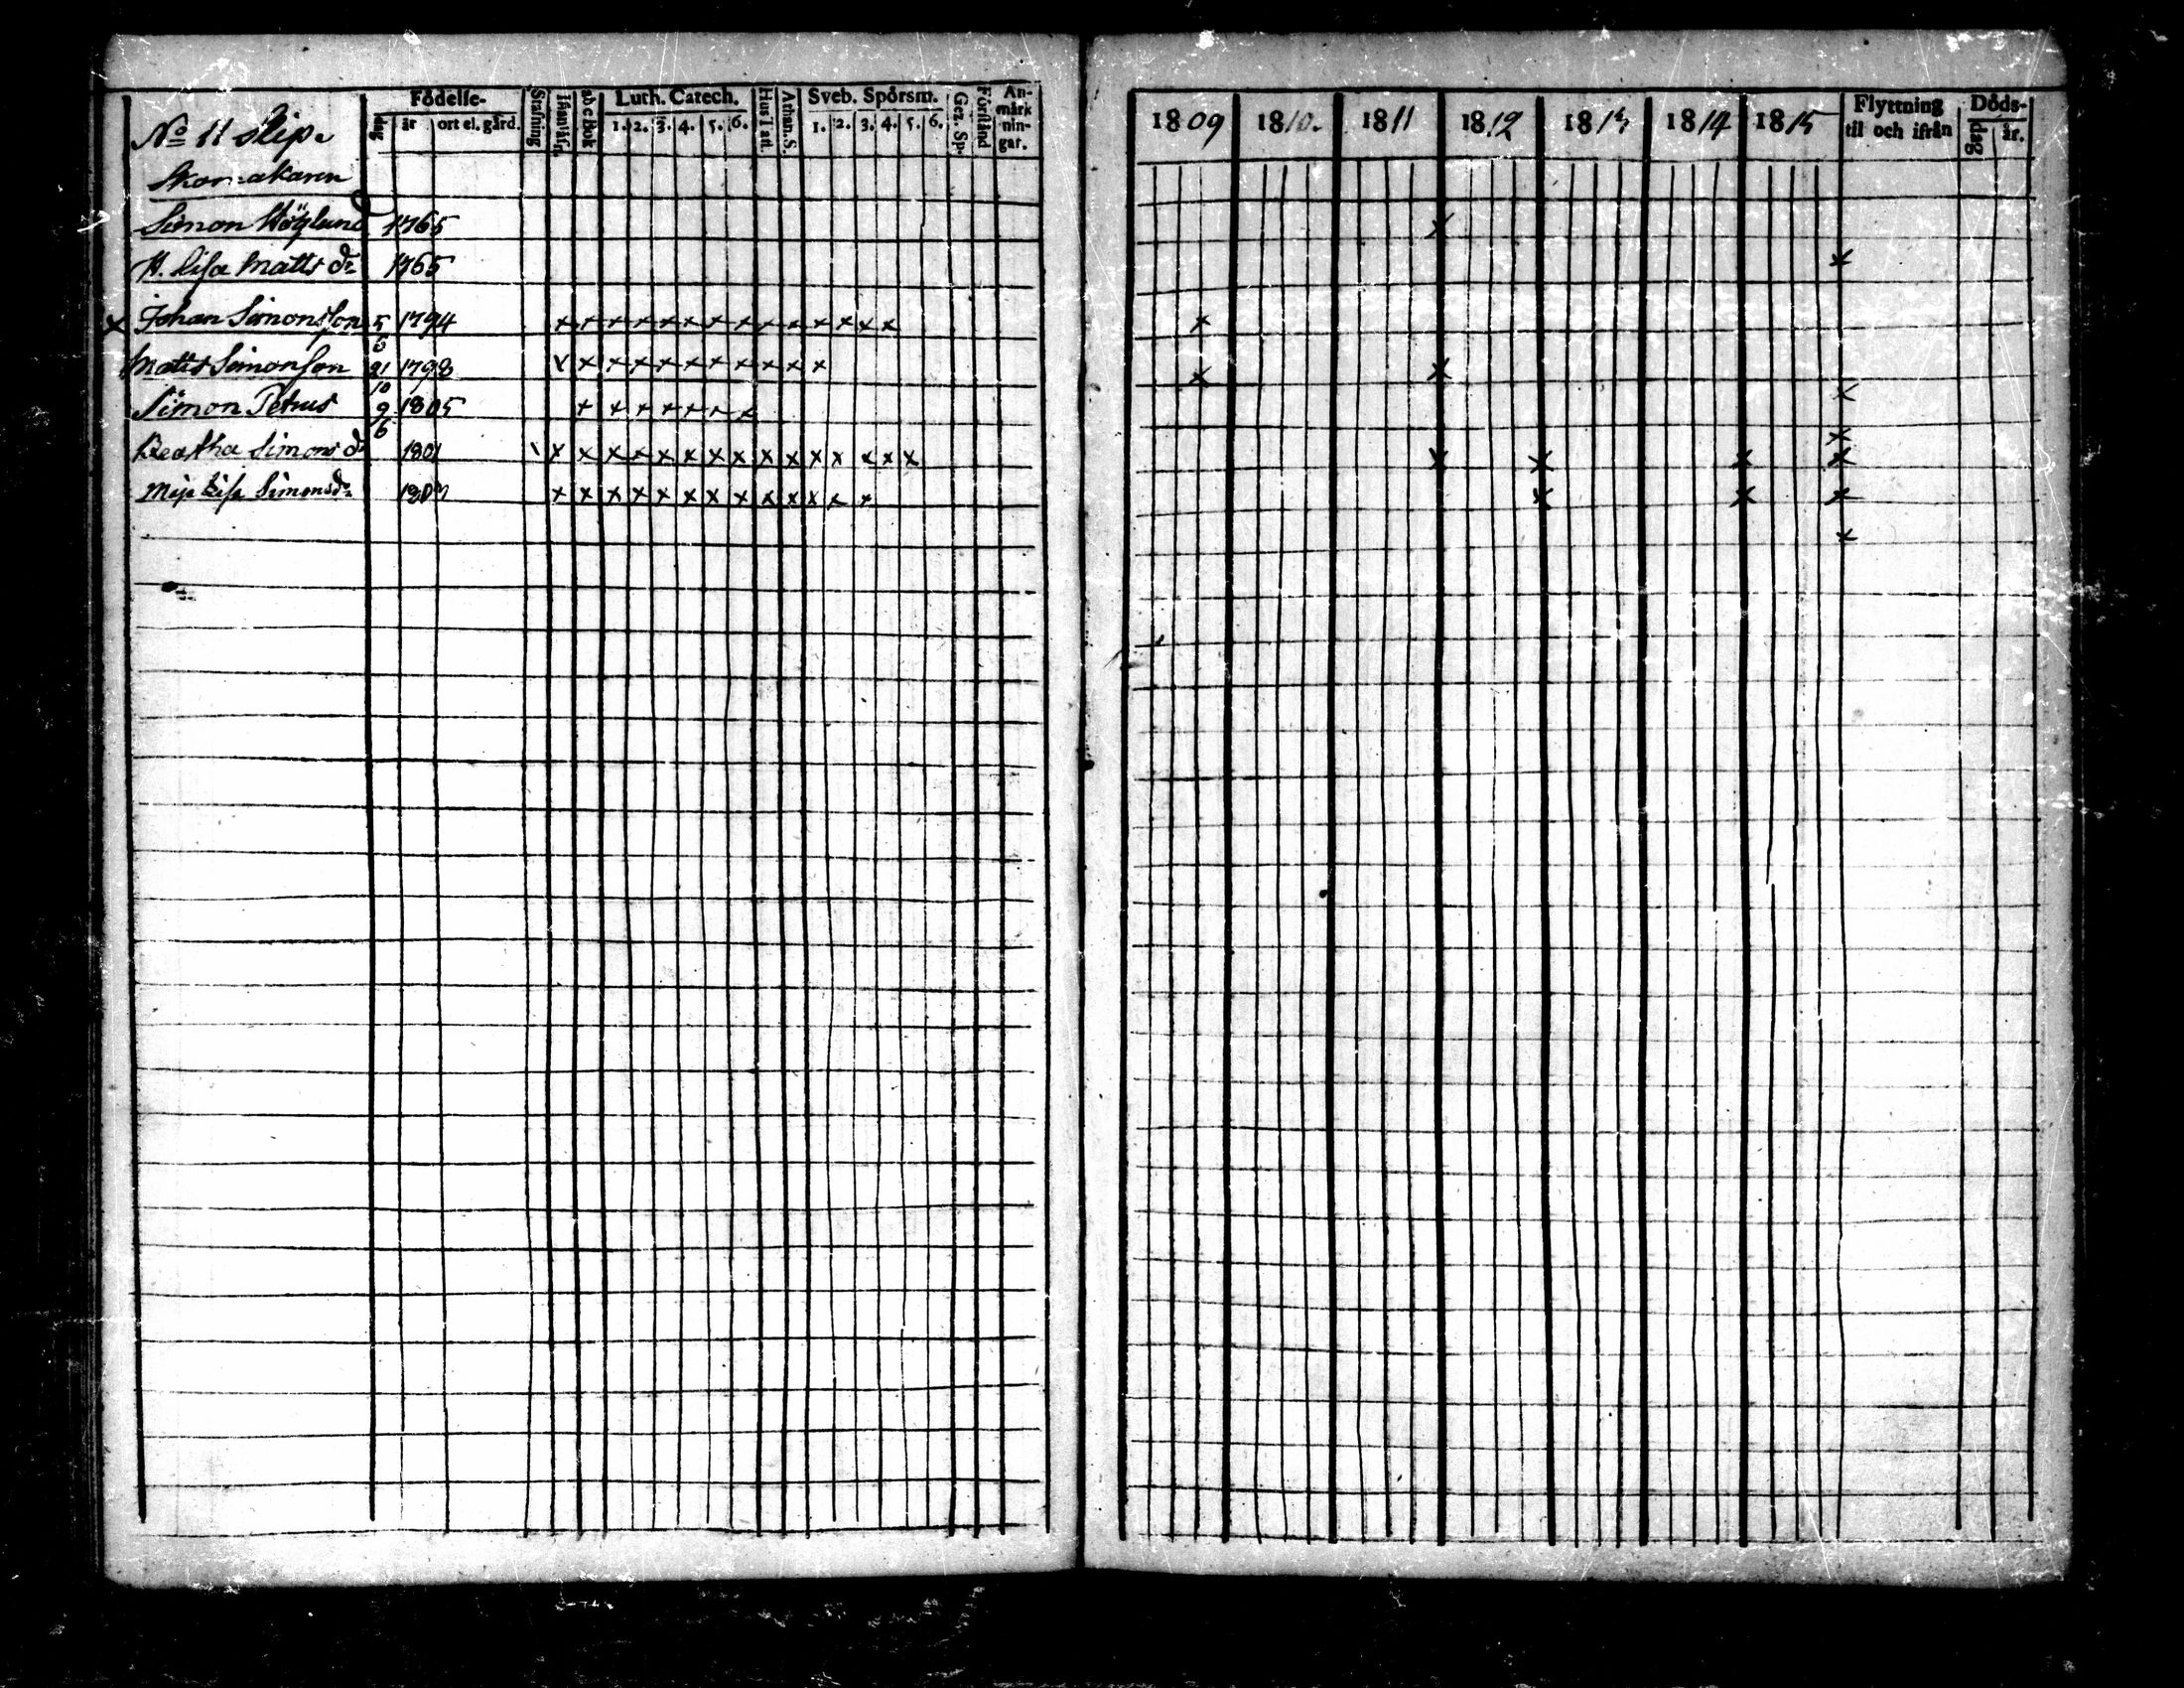 Födelse- Stafning Innanläsn. abc bok Luth. Catech. Hus Tafl. Athan. S. Sveb. Spörsm. Gez. Sp. Förstånd An-märk nin-gar.
No 11 Slip.
dag år ort el. gård. 1. 2. 3. 4. 5. 6. 1. 2. 3. 4. 5. 6.
Skomakaren
Simon Höglund 1765
H. Lisa Matts dr 1765
x Johan Simonsson 5/6 1794 x x x x x x x x x x x x x x
Matts Simonson 21/10 1798 v x x x x x x x x x x
Simon Petrus 9/6 1805 x x x x x x x
Beatha Simons dr 1801 x x x x x x x x x x x x x x x
Maja Lisa Simonsdr 1803 x x x x x x x x x x x x x
1809 1810. 1811 1812 1813 1814 1815 Flyttning til och ifrån Döds-
dag år.
x
x
x
x x
x
x
x x x x
x x x
x